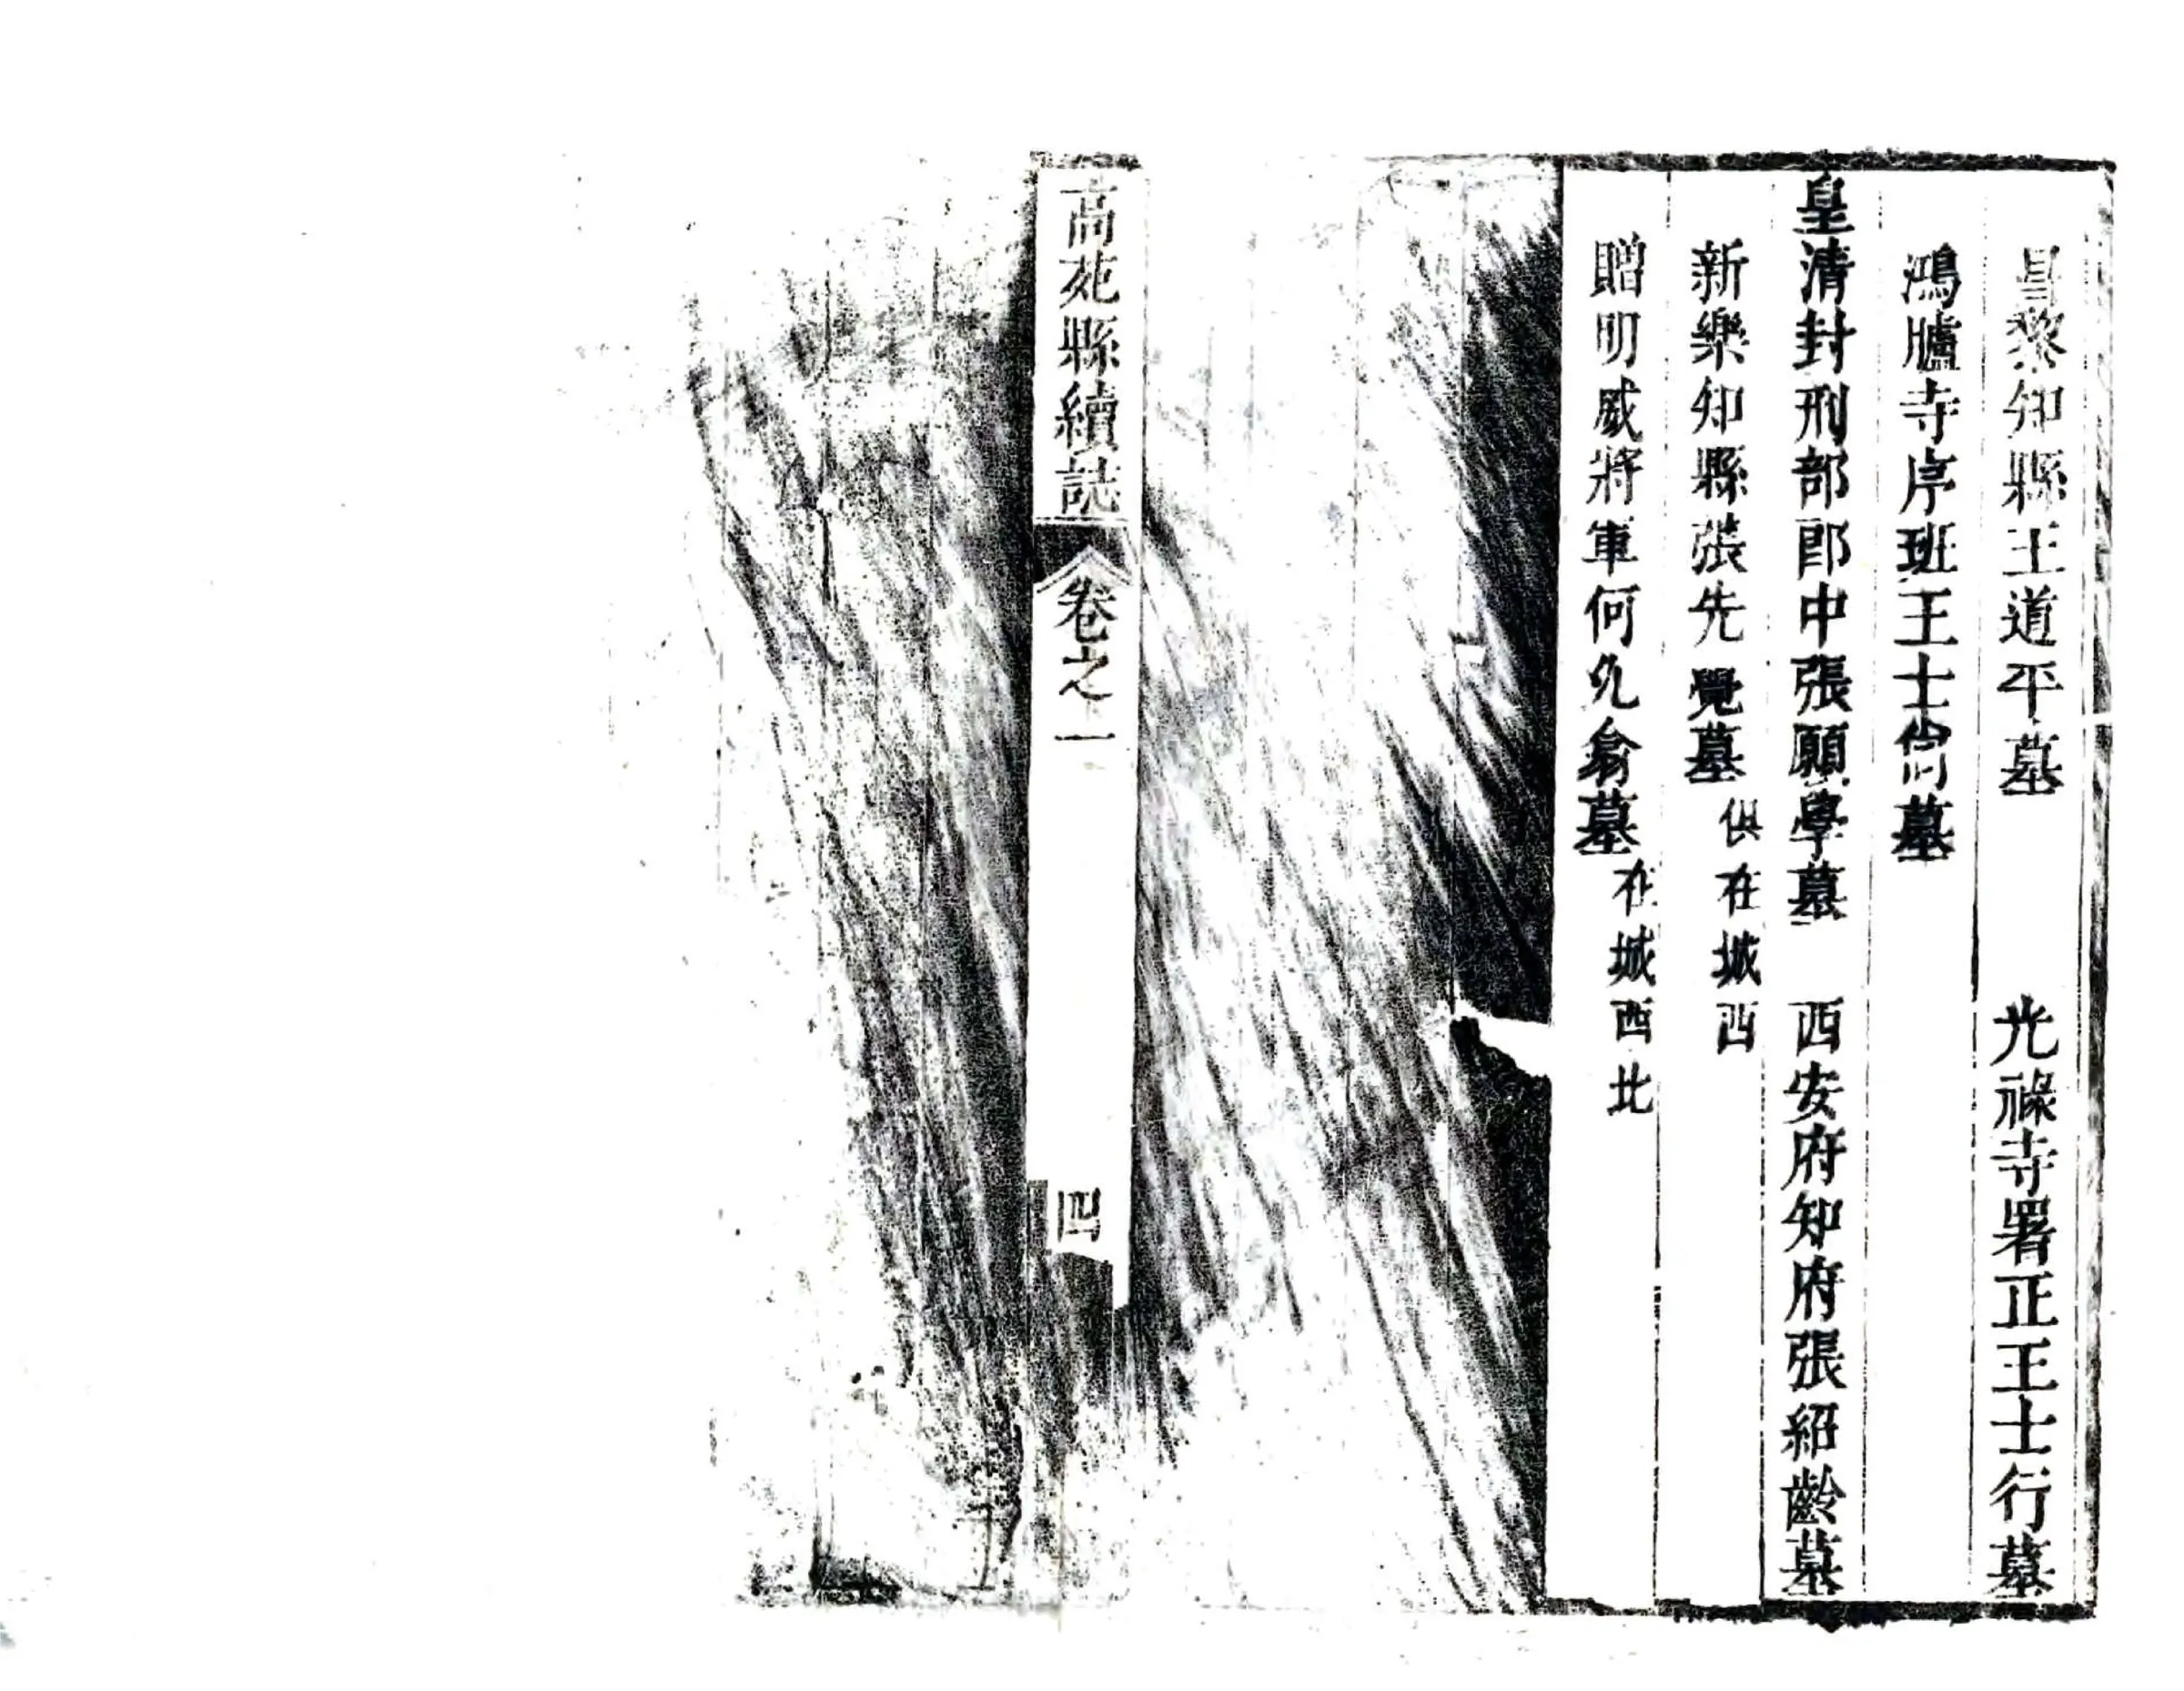 昌黎知縣王道平墓　光祿寺署正王士行墓
鴻臚寺序班王士尙墓
皇清封刑部郎中張願學墓　西安府知府張紹齡墓
新樂知縣張先覺墓　俱在城西
贈明威將軍何九翁墓　在城西北
高苑縣續誌　卷之一　四